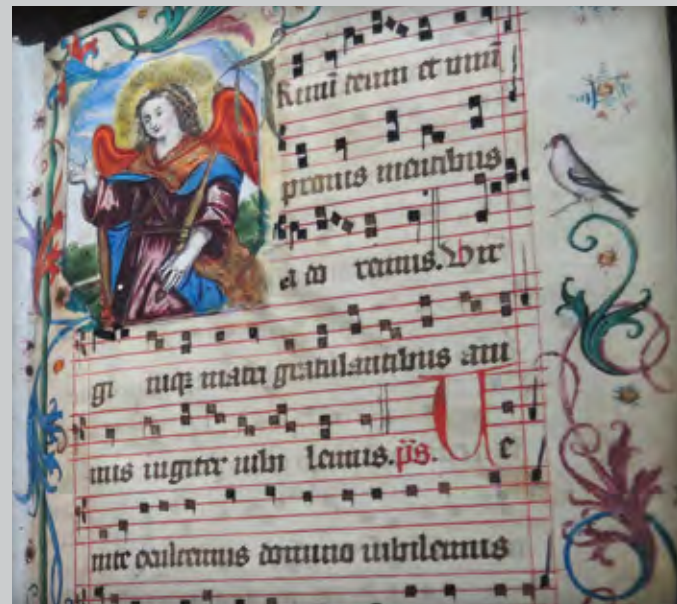 Rinũ deum et unũ
pronis mentibus
a do remus. Vir
gi niqꝫ matri gratulantibus ani
mis iugiter iubi lemus. p̃s. Ve
nite exultemus domino iubilemus